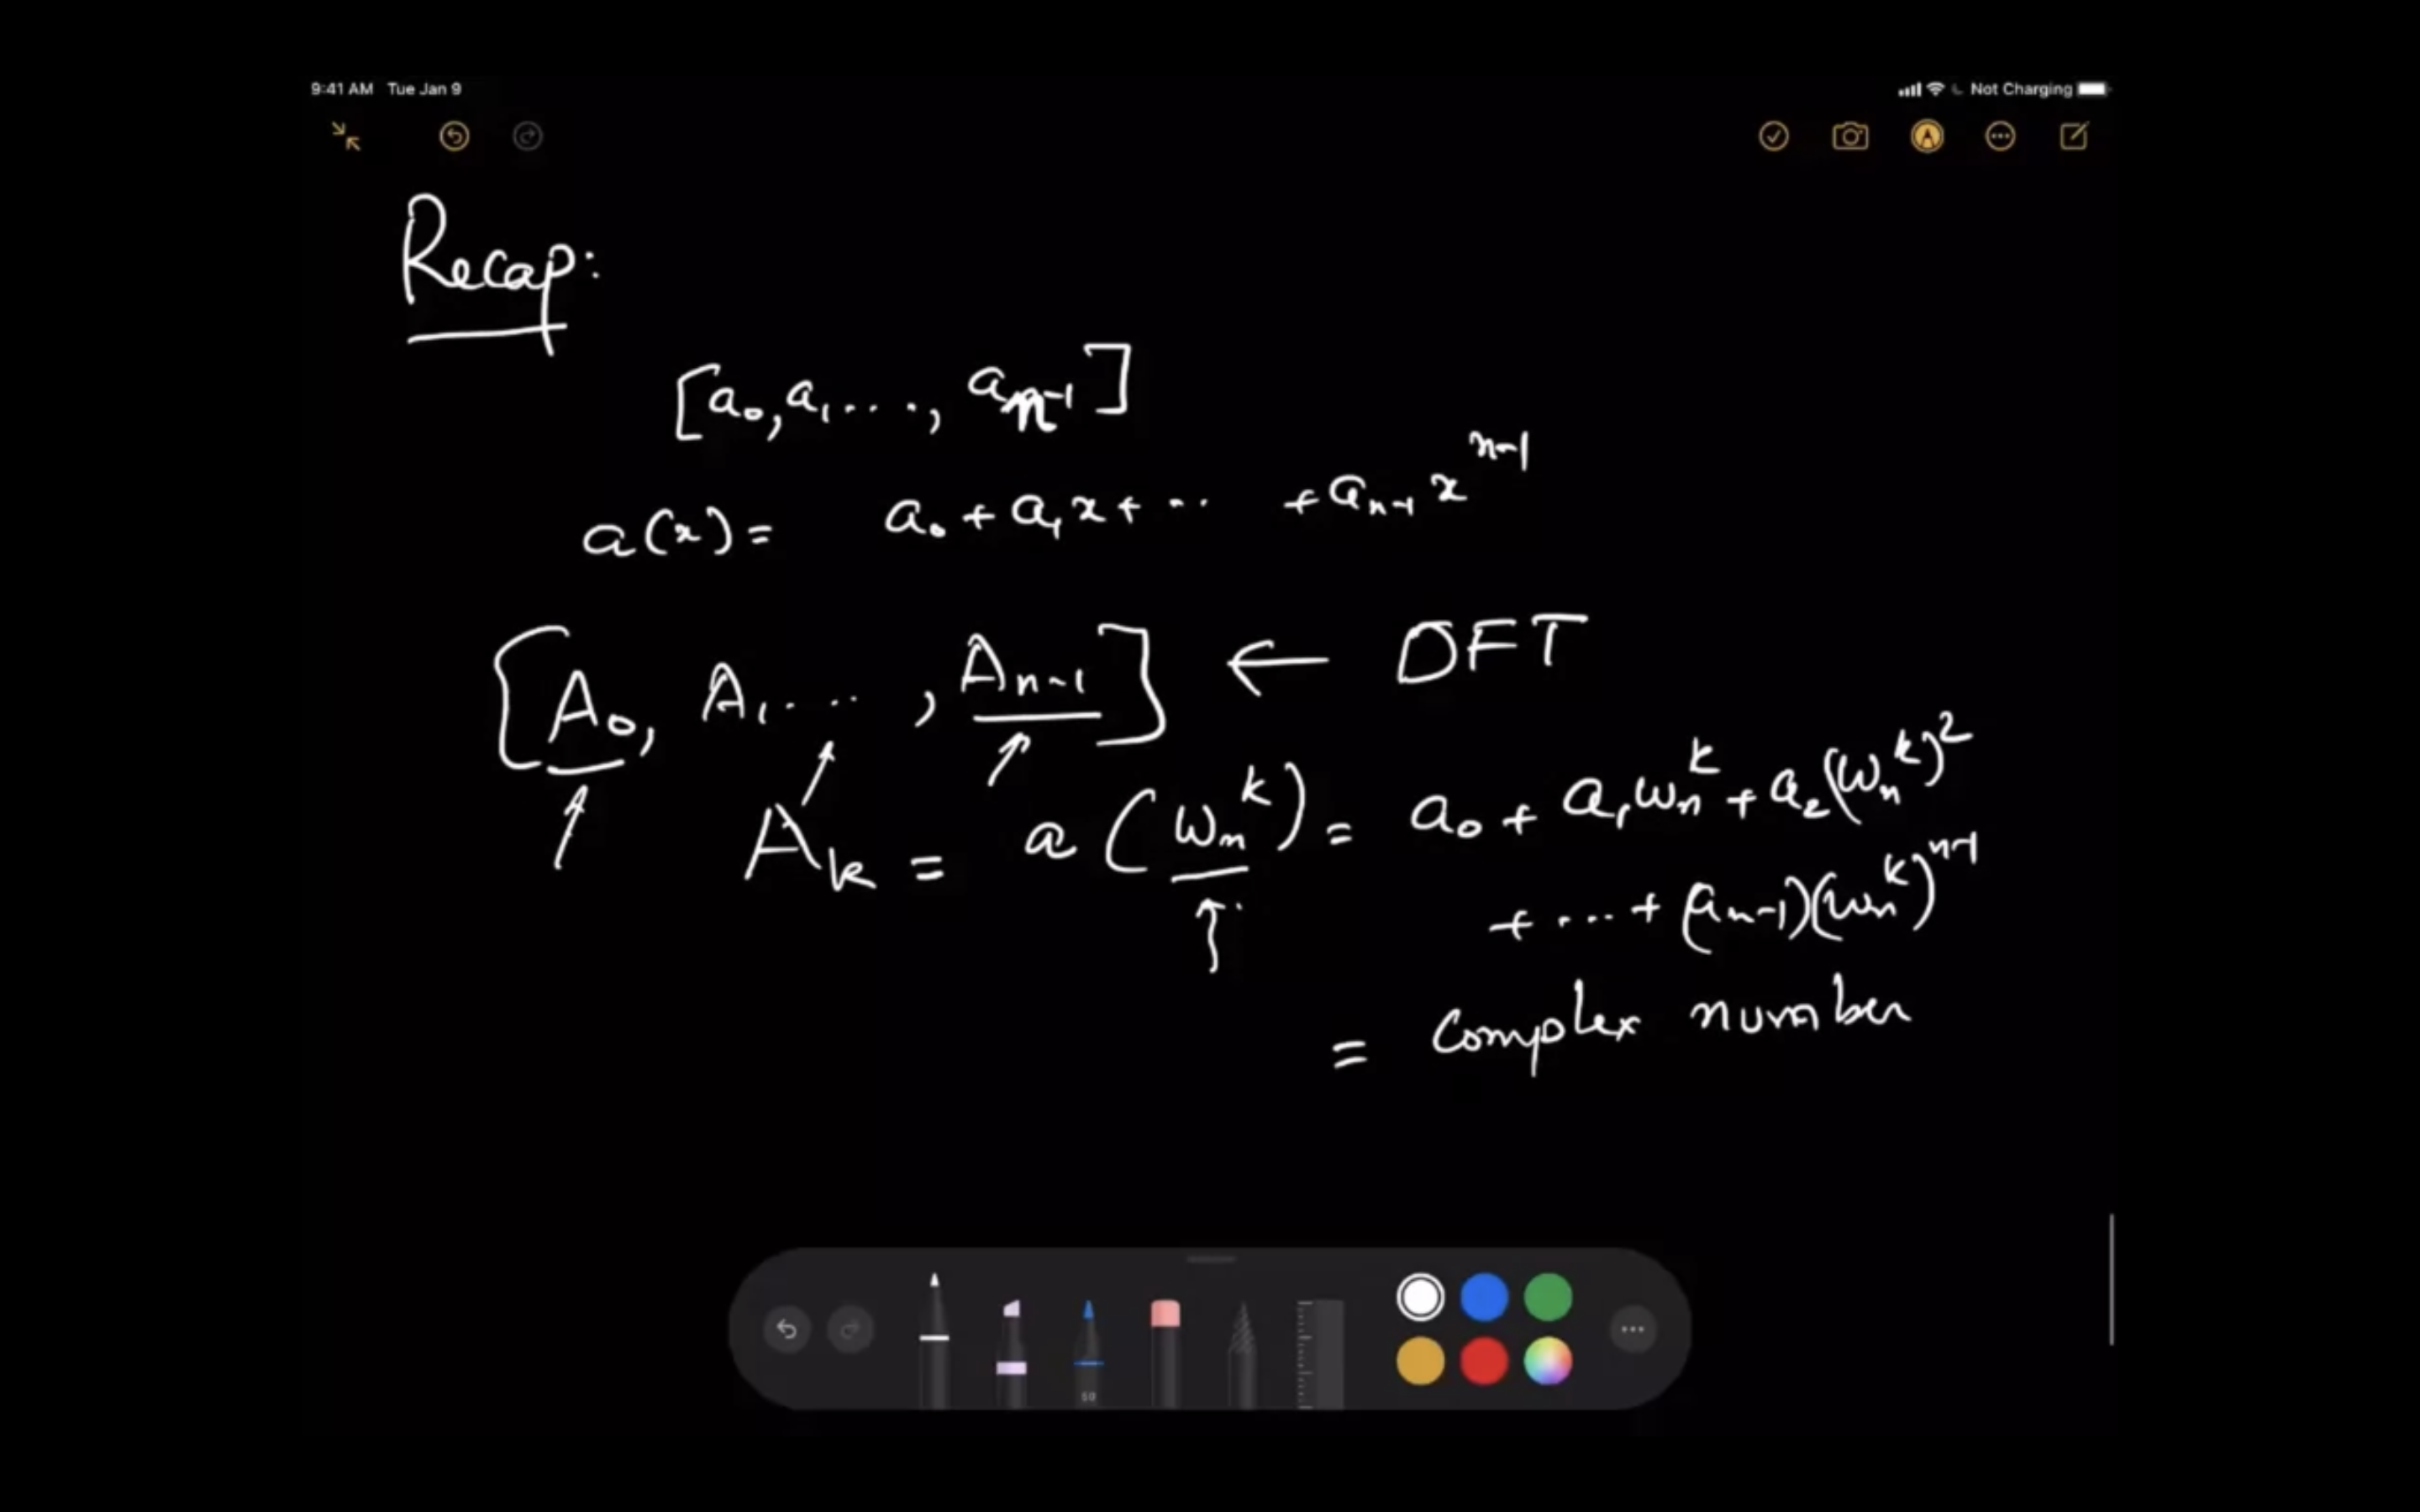 9:41 AM Tue Jan 9 Not Charging
Recap:
[a₀, a₁ ..., aₙ₋₁]
a(x) = a₀ + a₁x + ... + aₙ₋₁ xⁿ⁻¹
[A₀, A₁ ..., Aₙ₋₁] ← DFT
Aₖ = a(ωₙᵏ) = a₀ + a₁ωₙᵏ + a₂(ωₙᵏ)²
+ ... + (aₙ₋₁)(ωₙᵏ)ⁿ⁻¹
= Complex number
50